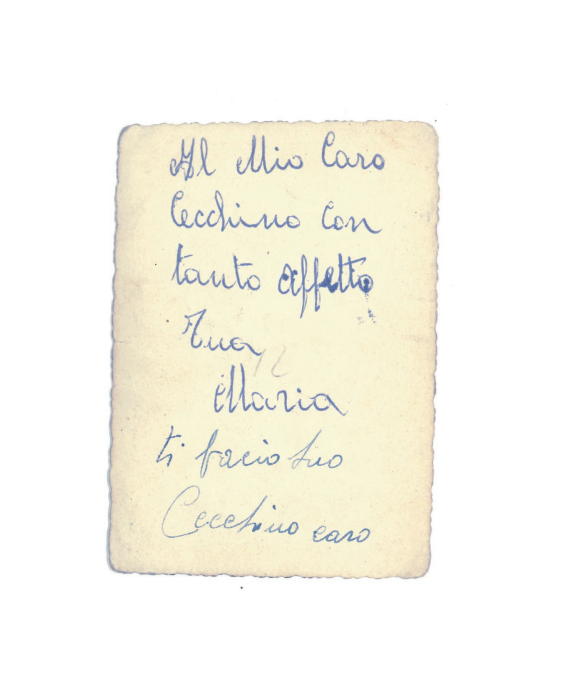 Al Mio Caro
Cecchino Con
tanto affetto
Tua
12
Maria
ti facio tuo
Cecchino caro